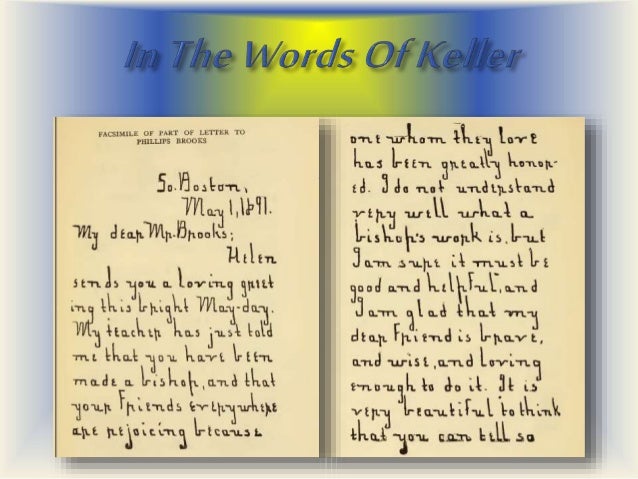 In The Words Of Keller
FACSIMILE OF PART OF LETTER TO
PHILLIPS BROOKS
So. Boston,
May 1, 1891.
My dear Mr. Brooks;
Helen
sends you a loving greet
ing this bright May-day.
My teacher has just told
me that you have been
made a bishop, and that
your friends everywhere
are rejoicing because
one whom they love
has been greatly honor-
ed. I do not understand
very well what a
bishop's work is, but
I am sure it must be
good and helpful, and
I am glad that my
dear friend is brave,
and wise, and loving
enough to do it. It is
very beautiful to think
that you can tell so